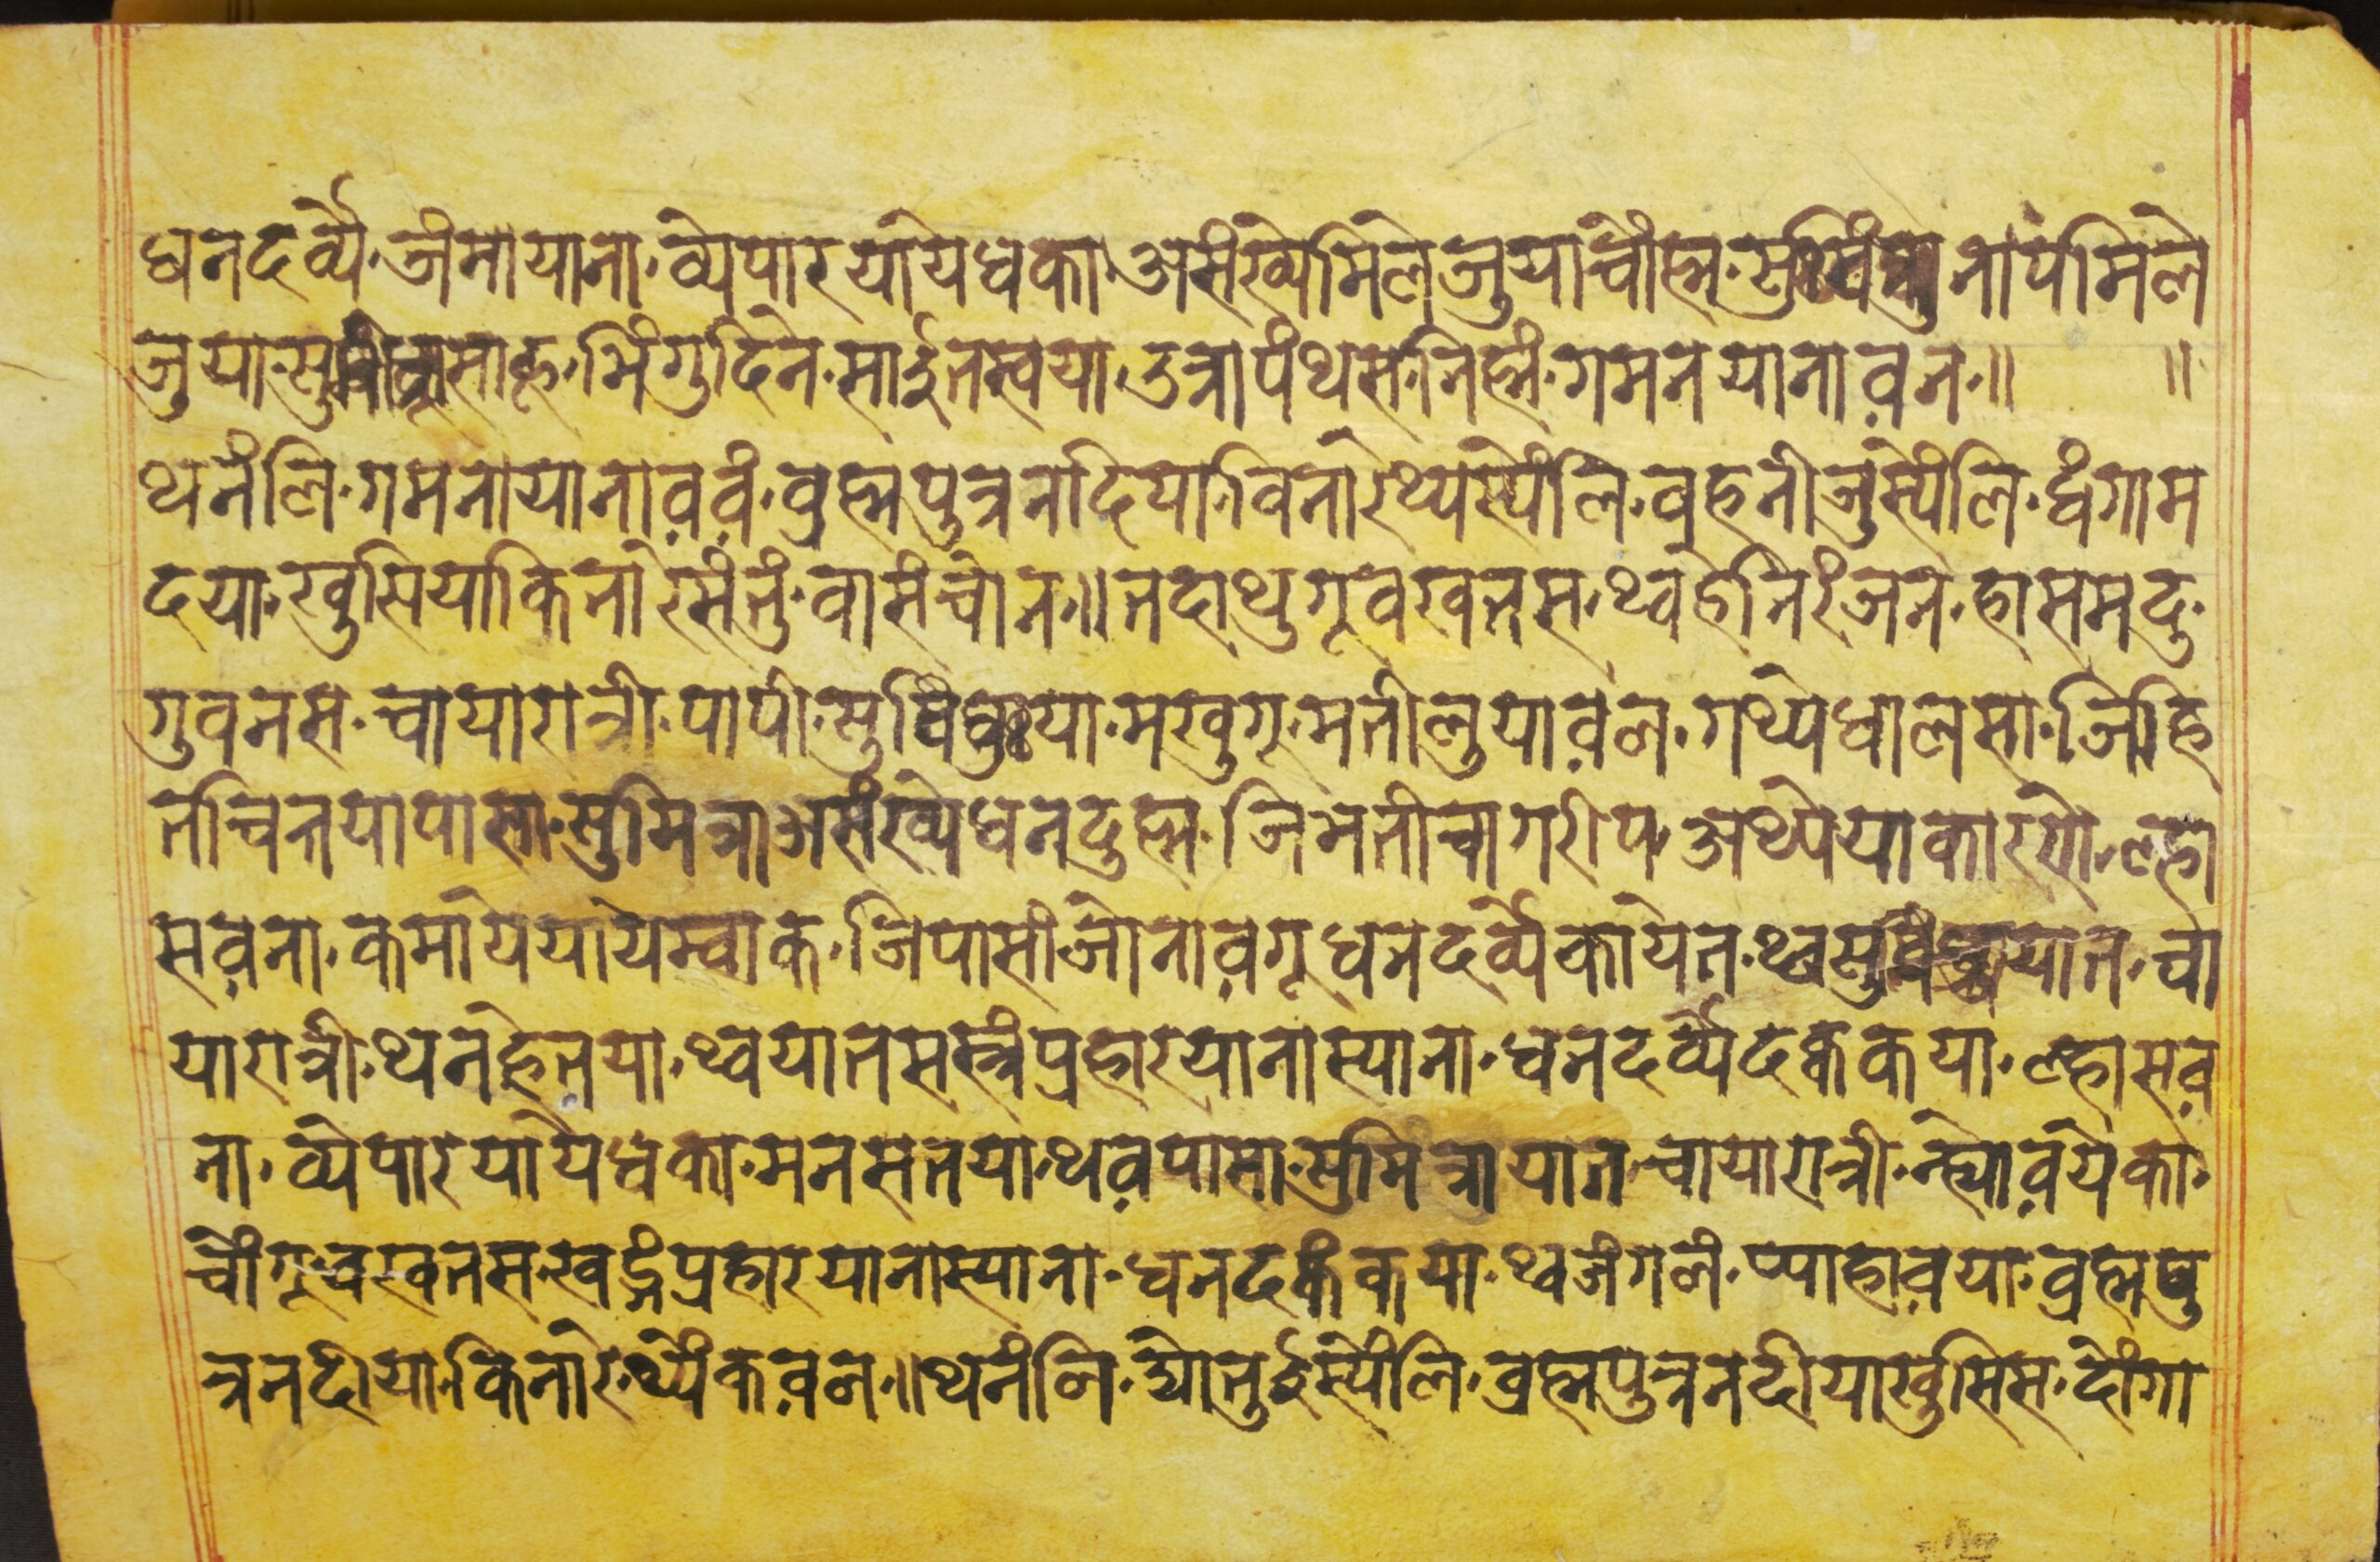 धनदर्व्ये॰जंमायाना॰व्येपारयायेधका॰असंख्येमिलेजुयाचौंह्म॰ नापंमिले
जुया॰ साह्र॰भिंगुदिन॰साईतस्वया॰उत्रापंथस॰निह्मं॰गमनयानाव़न॰॥ ॥
थनंलि॰गमनायानाव़वं॰ब्रह्मपुत्रनदिया॰किनारेथ्यंस्येंलि॰वहनीजुस्येंलि॰धंगाम
दया॰खुसियाकिनारेसंतुं॰वासंचोन॰॥तदाथुगूवखतस॰थ्वहेनिरंजन॰हासमदु॰
गुवनस॰चायारात्री॰पापी॰सु या॰मखुगू॰मतीलुयाव़ल॰गथ्येधालसा॰जिहि
तचित्तयापासा॰सुमित्रा॰असंख्येधनदुह्म॰जिमतीचागरीप॰अथ्येयाकारणे॰ल्हा
सव़ना॰कमायेयायेम्वाक॰जिपासांजोनाव़गूधनदर्व्येकायेत॰थ्वसु यात॰चा
यारात्री॰थनहेतया॰थ्वयातसस्त्रंप्रहारयानास्याना॰धनदर्व्येदक्वकया॰ल्हासव़
ना॰व्येपारयायेधका॰मनसतया॰थव़पासा॰सुमित्रायात॰चायारात्री॰न्ह्योव़येका॰
चोंगू॰वखतस॰खड्गंप्रहारयानास्याना॰धनदक्वंकया॰थ्वजंगलं॰प्याहाव़या॰ब्रह्मपु
त्रनदीया॰किनारे॰थ्यंकव़ल॰॥थनंलि॰द्योतुईस्येंलि॰ब्रह्मपुत्रनदीयाखुसिस॰दोंगा